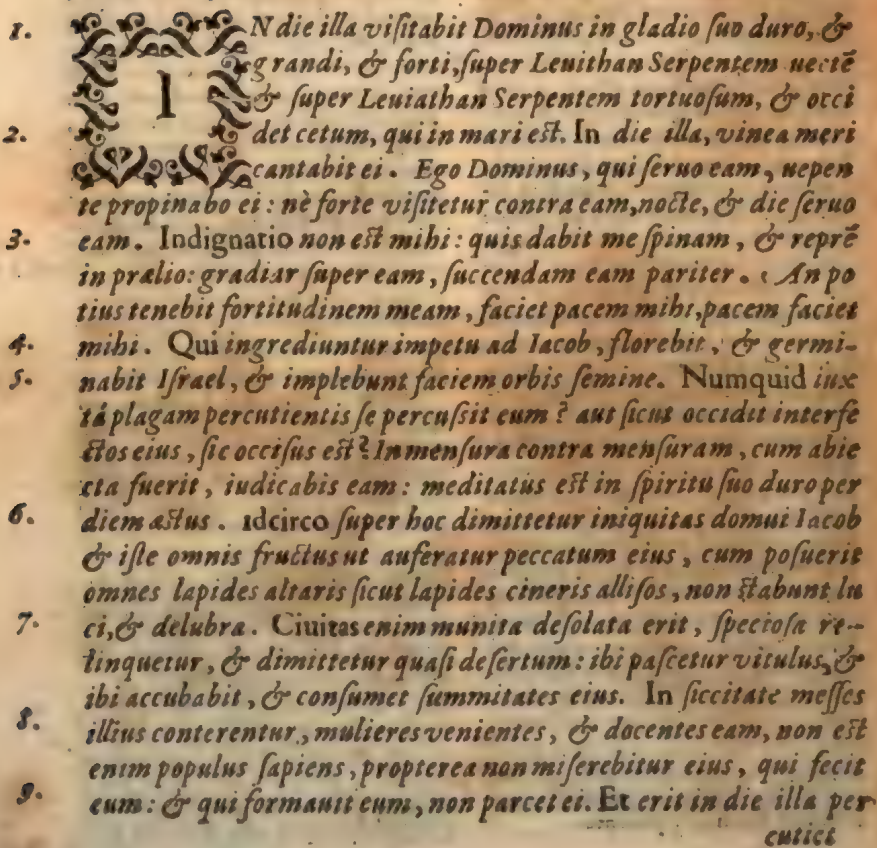 1. IN die illa viſitabit Dominus in gladio ſuo duro, &
grandi, & forti, ſuper Leuithan Serpentem uectẽ
& ſuper Leuiathan Serpentem tortuoſum, & occi
2. det cetum, qui in mari eſt. In die illa, vinea meri
cantabit ei. Ego Dominus, qui ſeruo eam, uepen
te propinabo ei: nè forte viſitetur contra eam, nocte, & die ſeruo
3. eam. Indignatio non eſt mihi: quis dabit me ſpinam, & reprẽ
in prælio: gradiar ſuper eam, ſuccendam eam pariter. An po
tius tenebit fortitudinem meam, faciet pacem mihi, pacem faciet
4. mihi. Qui ingrediuntur impetu ad Iacob, florebit, & germi-
5. nabit Iſrael, & implebunt faciem orbis ſemine. Numquid iux
tá plagam percutientis ſe percuſsit eum? aut ſicut occidit interfe
ctos eius, ſic occiſus eſt? In menſura contra menſuram, cum abie
cta fuerit, iudicabis eam: meditatus eſt in ſpiritu ſuo duro per
6. diem æſtus. idcirco ſuper hoc dimittetur iniquitas domui Iacob
& iſte omnis fructus ut auferatur peccatum eius, cum poſuerit
omnes lapides altaris ſicut lapides cineris alliſos, non ſtabunt lu
7. ci, & delubra. Ciuitas enim munita deſolata erit, ſpecioſa re-
linquetur, & dimittetur quaſi deſertum: ibi paſcetur vitulus, &
ibi accubabit, & conſumet ſummitates eius. In ſiccitate meſſes
8. illius conterentur, mulieres venientes, & docentes eam, non eſt
enim populus ſapiens, propterea non miſerebitur eius, qui fecit
9. eum: & qui formauit eum, non parcet ei. Et erit in die illa per
cutiet